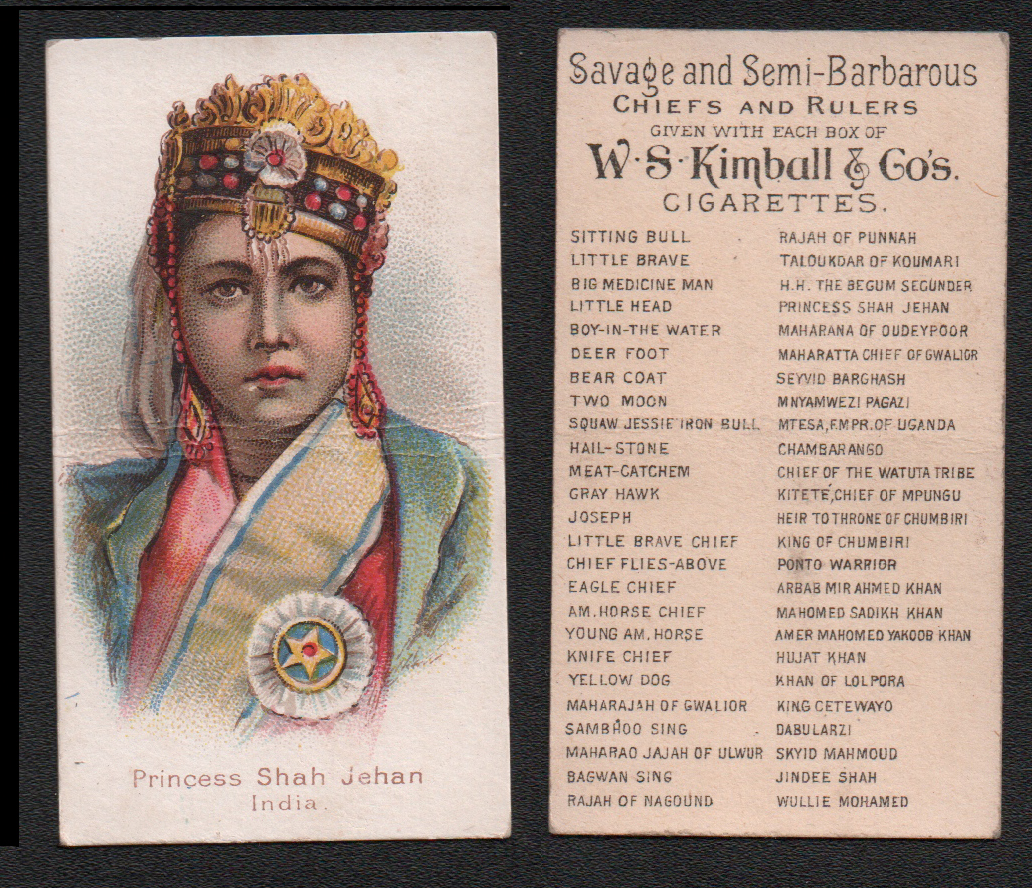 Princess Shah Jehan
India.
Savage and Semi-Barbarous
CHIEFS AND RULERS
GIVEN WITH EACH BOX OF
W·S·Kimball & Co's.
CIGARETTES.
SITTING BULL
LITTLE BRAVE
BIG MEDICINE MAN
LITTLE HEAD
BOY-IN-THE WATER
DEER FOOT
BEAR COAT
TWO MOON
SQUAW JESSIE IRON BULL
HAIL-STONE
MEAT-CATCHEM
GRAY HAWK
JOSEPH
LITTLE BRAVE CHIEF
CHIEF FLIES-ABOVE
EAGLE CHIEF
AM. HORSE CHIEF
YOUNG AM. HORSE
KNIFE CHIEF
YELLOW DOG
MAHARAJAH OF GWALIOR
SAMBHOO SING
MAHARAO JAJAH OF ULWUR
BAGWAN SING
RAJAH OF NAGOUND
RAJAH OF PUNNAH
TALOUKDAR OF KOUMARI
H.H. THE BEGUM SECUNDER
PRINCESS SHAH JEHAN
MAHARANA OF OUDEYPOOR
MAHARATTA CHIEF OF GWALIOR
SEYVID BARGHASH
MNYAMWEZI PAGAZI
MTESA, EMPR. OF UGANDA
CHAMBARANGO
CHIEF OF THE WATUTA TRIBE
KITETE, CHIEF OF MPUNGU
HEIR TO THRONE OF CHUMBIRI
KING OF CHUMBIRI
PONTO WARRIOR
ARBAB MIR AHMED KHAN
MAHOMED SADIKH KHAN
AMER MAHOMED YAKOOB KHAN
HUJAT KHAN
KHAN OF LOLPORA
KING CETEWAYO
DABULARZI
SKYID MAHMOUD
JINDEE SHAH
WULLIE MOHAMED